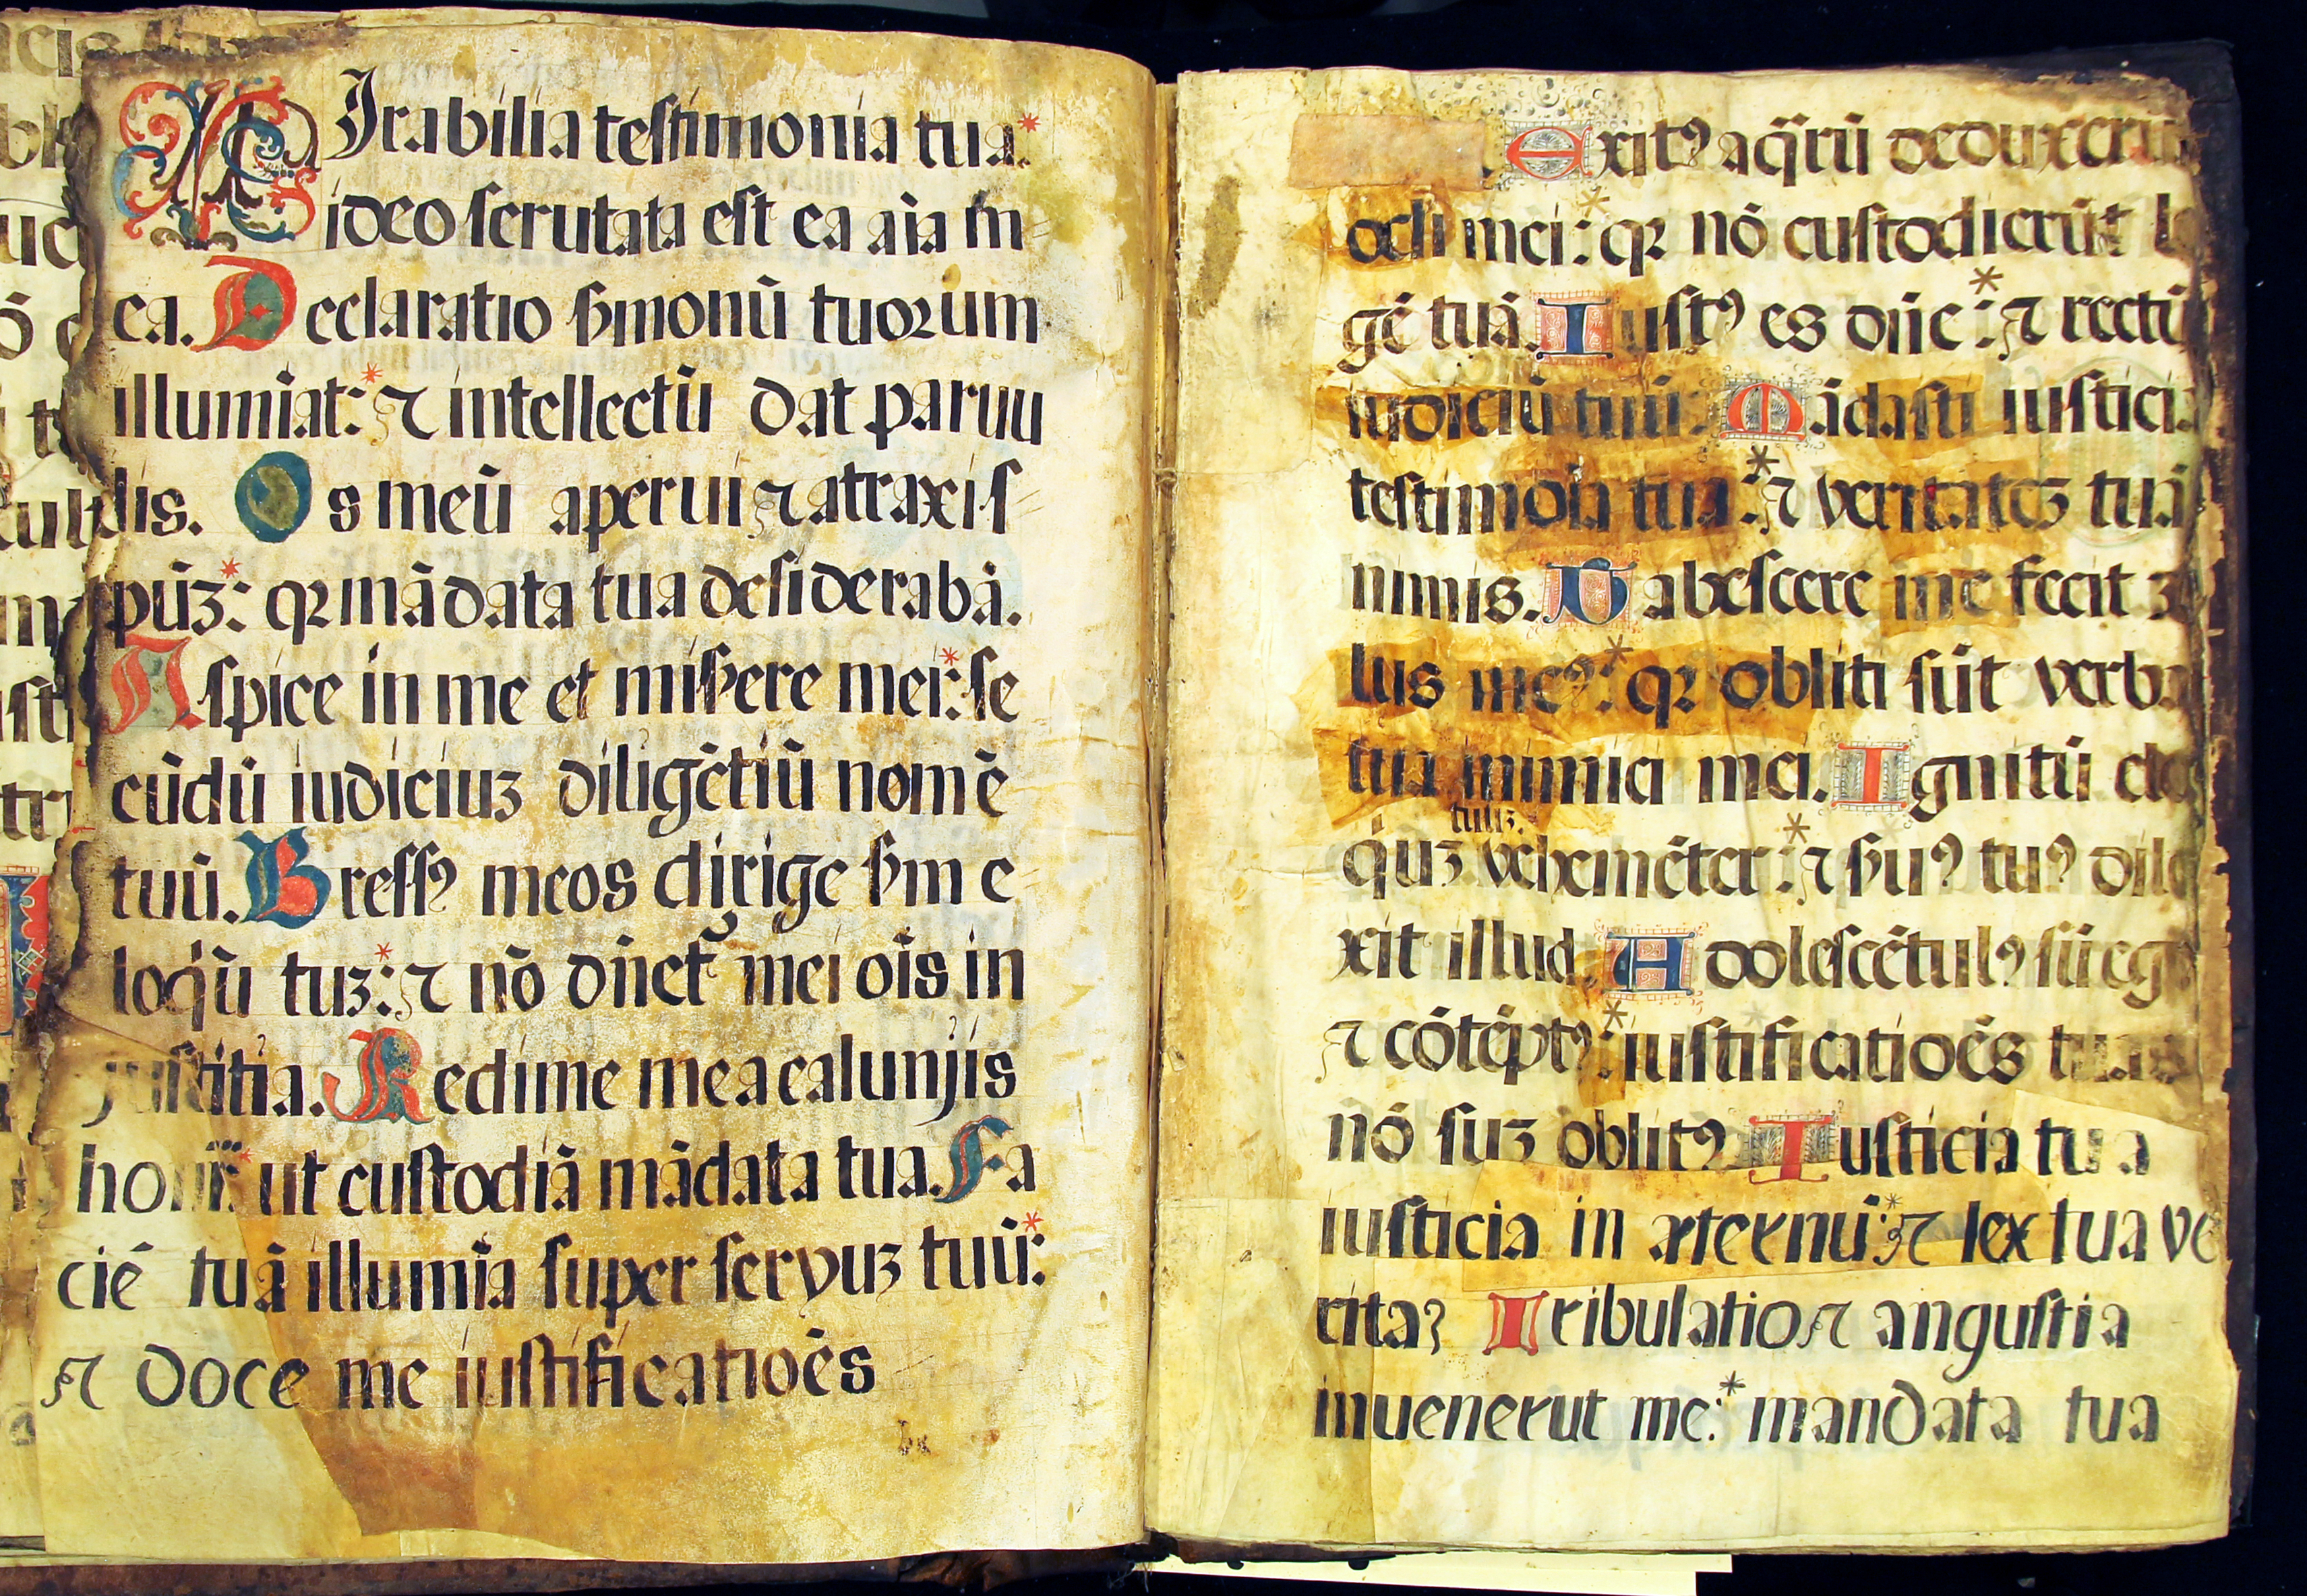 MIrabilia testimonia tua:*
ideo scrutata est ea aĩa m
ea. Declaratio s̃monũ tuorum
illumĩat:* ⁊ intellectũ dat paruu
lis. Os meũ aperui ⁊ atraxi s
pũꝫ:* qꝛ mãdata tua desiderabã.
Aspice in me et mis̃ere mei:* se
cũdũ iudiciuꝫ diligẽtiũ nomẽ
tuũ. Gressꝰ meos dirige s̃m e
loqũ tuꝫ:* ⁊ nõ dñet̃ mei oĩs in
justitia. Redime me a calunjis
hoĩm:* ut custodiã mãdata tua. Fa
ciẽ tuã illumĩa super servuꝫ tuũ:*
⁊ doce me iustificatiões
Exitꝰ aq̃rũ deduxerũ
ocli mei:* qꝛ nõ custodierũt le
gẽ tuã. Iustꝰ es dñe:* ⁊ rectũ
iudiciũ tuũ. Mãdasti iusticia
testimoĩa tua:* ⁊ veritateꝫ tuã
nimis. Tabescere me fecit ꝫ
lus meꝰ:* qꝛ obliti sũt verba
tua inimici mei. Ignitũ elo
qũꝫ tuuꝫ. vehemẽter:* ⁊ s̃uꝰ tuꝰ dile
xit illud. Adolescẽtulꝰ sũ ego
⁊ cõtẽptꝰ:* iustificatiões tuas
nõ suꝫ oblitꝰ. Iusticia tua
iusticia in æternũ:* ⁊ lex tua ve
ritas Tribulatio ⁊ angustia
inuenerut me:* mandata tua